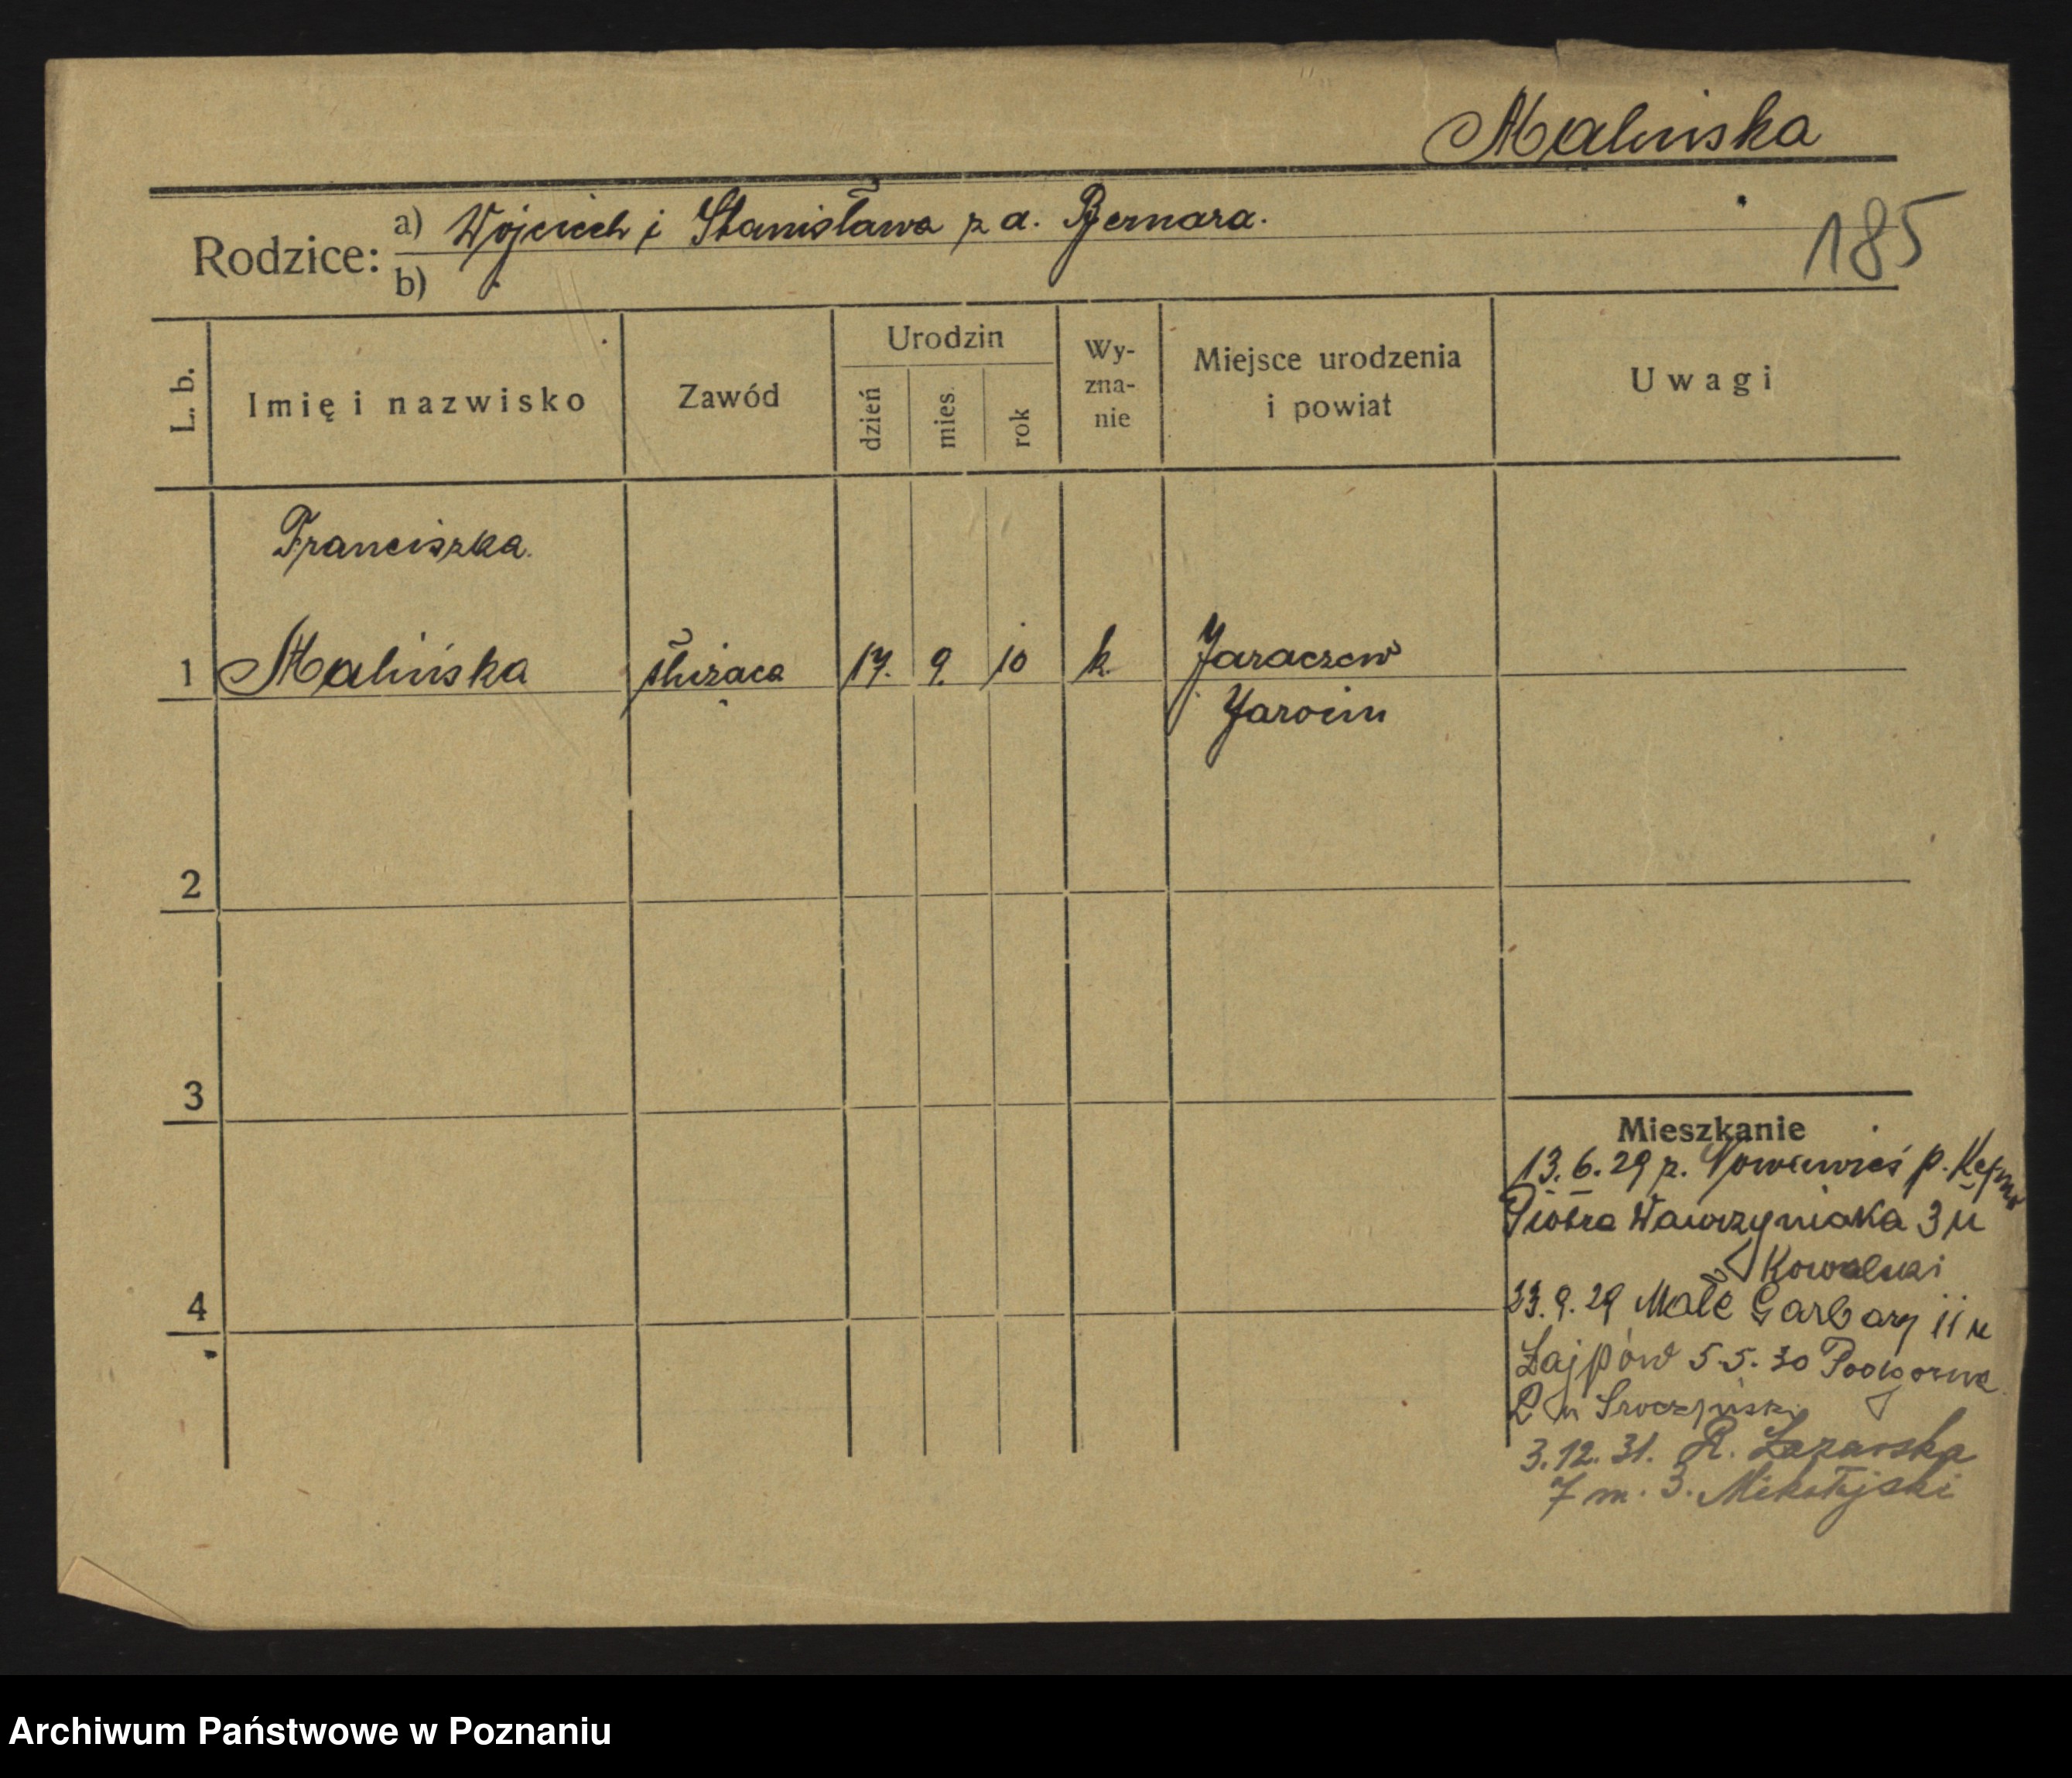 Malińska
185
Rodzice: a) Wojciech i Stanisława z d. Biernara.
b)
L. b.
Imię i nazwisko
Zawód
Urodzin
dzień
mies.
rok
Wy-
zna-
nie
Miejsce urodzenia
i powiat
Uwagi
Franciszka.
1 Malińska służąca 17. 9. 10 k. Jaraczew
Jarocin
2
3
4
Mieszkanie
13.6.29 z. Nowawieś p. Kępno
Piotra Wawrzyniaka 3 u
Kowalski
23.9.29 Małe Garbary 11 u
5.5.30 Podgórna
3.12.31. R. Łazarska
7 m. 3. Mikołajski
Archiwum Państwowe w Poznaniu